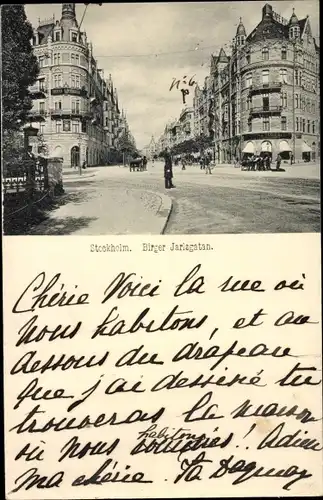 No 6
Stockholm. Birger Jarlsgatan.
Chérie Voici la rue où
nous habitons, et au
dessous du drapeau
que j'ai dessiné tu
trouveras la maison
où nous habitons!! Adieu
ma chérie. Ta Dagmar